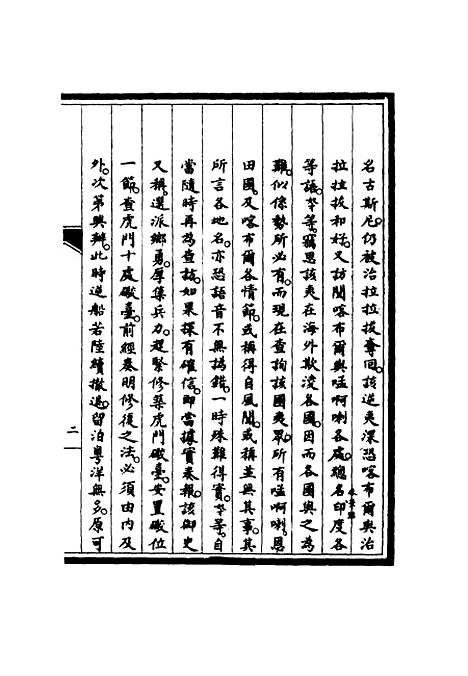 名古斯尼仍被治拉拉拔奪回該逆夷深恐喀布爾與治
拉拉拔和好又訪聞喀布爾與㗲啊喇各處總名印度各
等語等竊思該夷在海外欺淩各國因而各國與之為
難似係勢所必有而現在查拘該國夷眾所有㗲啊喇恩
田國及喀布爾各情節或稱得自風聞或稱並無其事其
所言各地名亦恐語音不無譌錯一時殊難得實等自
當隨時再為查訪如果探有確信即當據實奏報該御史
又稱選派鄉勇厚集兵力趕緊修築虎門礮臺安置礮位
一節查虎門十處礮臺前經奏明修復之法必須由內及
外次第興辦此時逆船若陸續撤退留泊粵洋無多原可
二